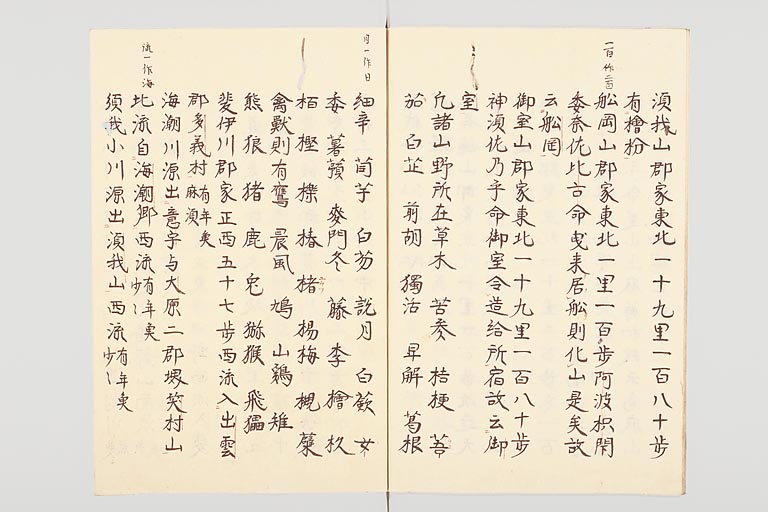 一百作二百
須我山郡家東北一十九里一百八十步
有檜枌
舩岡山郡家東北一里一百步阿波枳閇
委奈佐比古命曳来居舩則化山是矣故
云舩岡
御室山郡家東北一十九里一百八十步
神須佐乃乎命御室令造給所宿故云御
室
凡諸山野所在草木苦参桔梗菩
茄白芷前胡獨活早解葛根
月一作日
細辛茵芋白芴説月白蘞女
委薯蕷麥門冬藤李檜杉
栢樫櫟椿楮楊梅槻蘗
禽獸則有鷹晨風鳩山鷄雉
熊狼猪鹿兔獼猴飛鼯
斐伊川郡家正西五十七步西流入出雲
郡多義村有年魚麻須
海潮川源出意宇与大原二郡堺笑村山
北流自海潮郷西流有年魚少々
須我小川源出須我山西流有年魚少々
流一作海